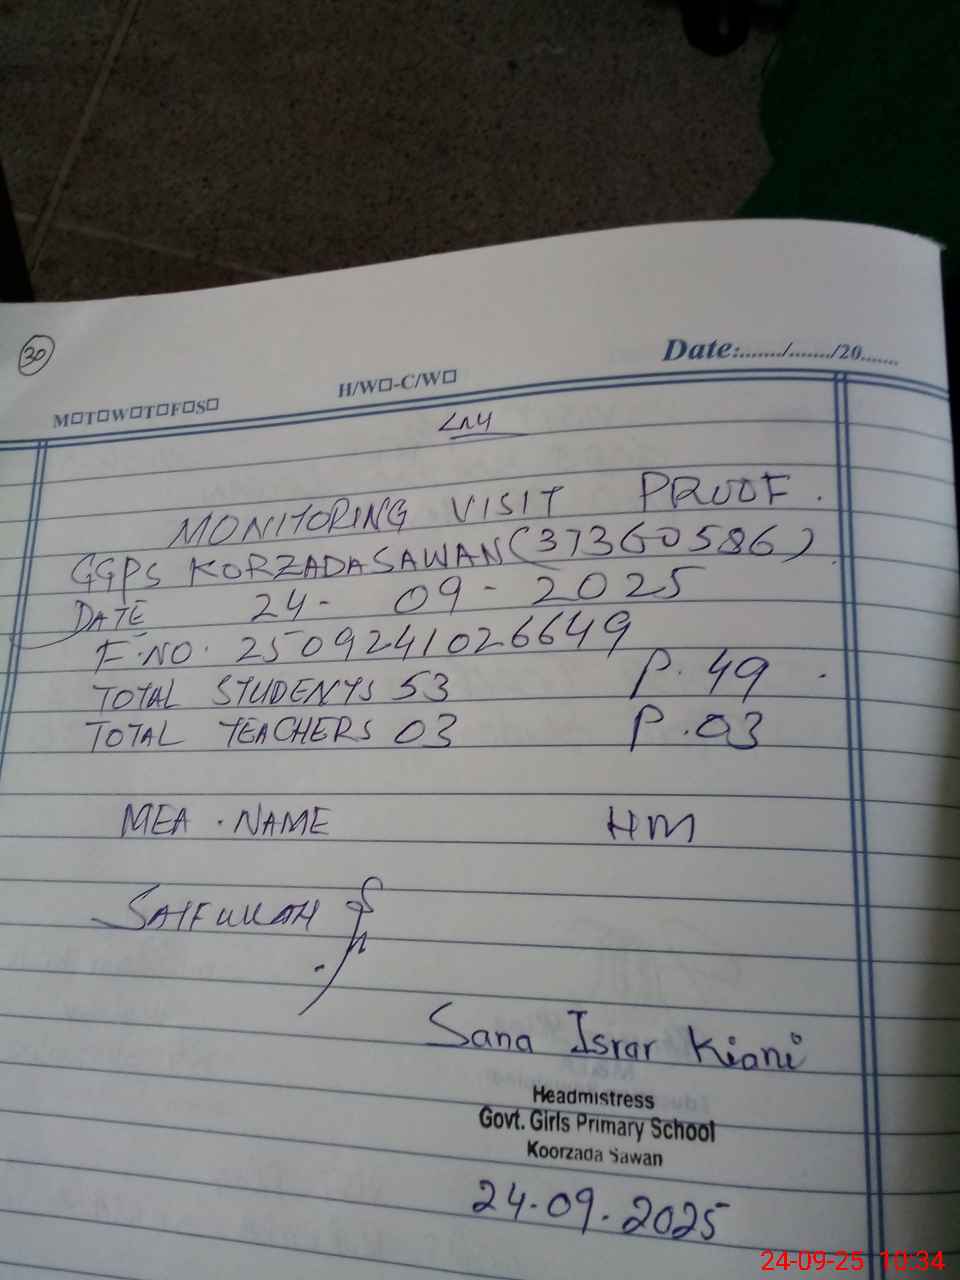 30
Date:......./......./20.......
M□T□W□T□F□S□ H/W□-C/W□
MONITORING VISIT PROOF.
GGPS KORZADASAWAN (37360586)
DATE 24-09-2025
F.NO. 2509241026649
TOTAL STUDENTS 53 P. 49
TOTAL TEACHERS 03 P. 03
MEA. NAME HM
SAIFULLAH
Sana Israr Kiani
Headmistress
Govt. Girls Primary School
Koorzada Sawan
24.09.2025
24-09-25 10:34